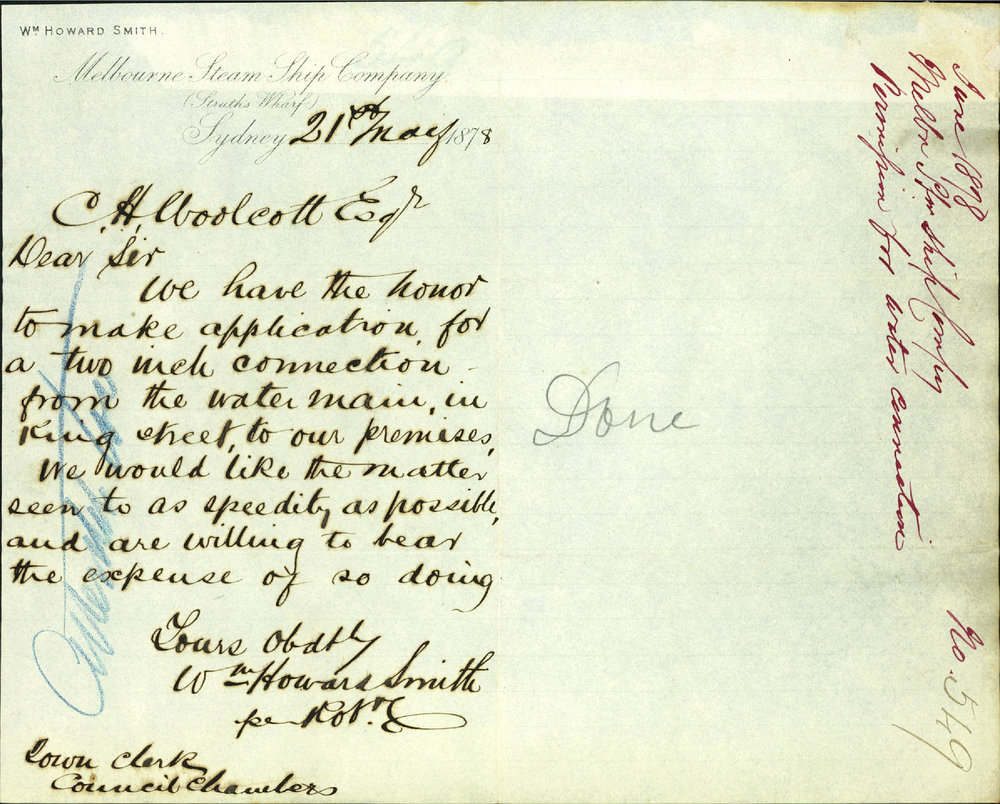 Wm HOWARD SMITH.
Melbourne Steam Ship Company
(Struths Wharf)
Sydney 21st May 1878
C. H. Woolcott Esqr
Dear Sir
We have the honor
to make application, for
a two inch connection
from the water main, in
King street, to our premises,
We would like the matter
seen to as speedily as possible,
and are willing to bear
the expense of so doing
Yours Obdtly
Wm Howard Smith
per Robt
Town Clerk
Council Chambers
Done
June 1878
Melbn Stm Ship Compy
Permission for water connection
No. 549